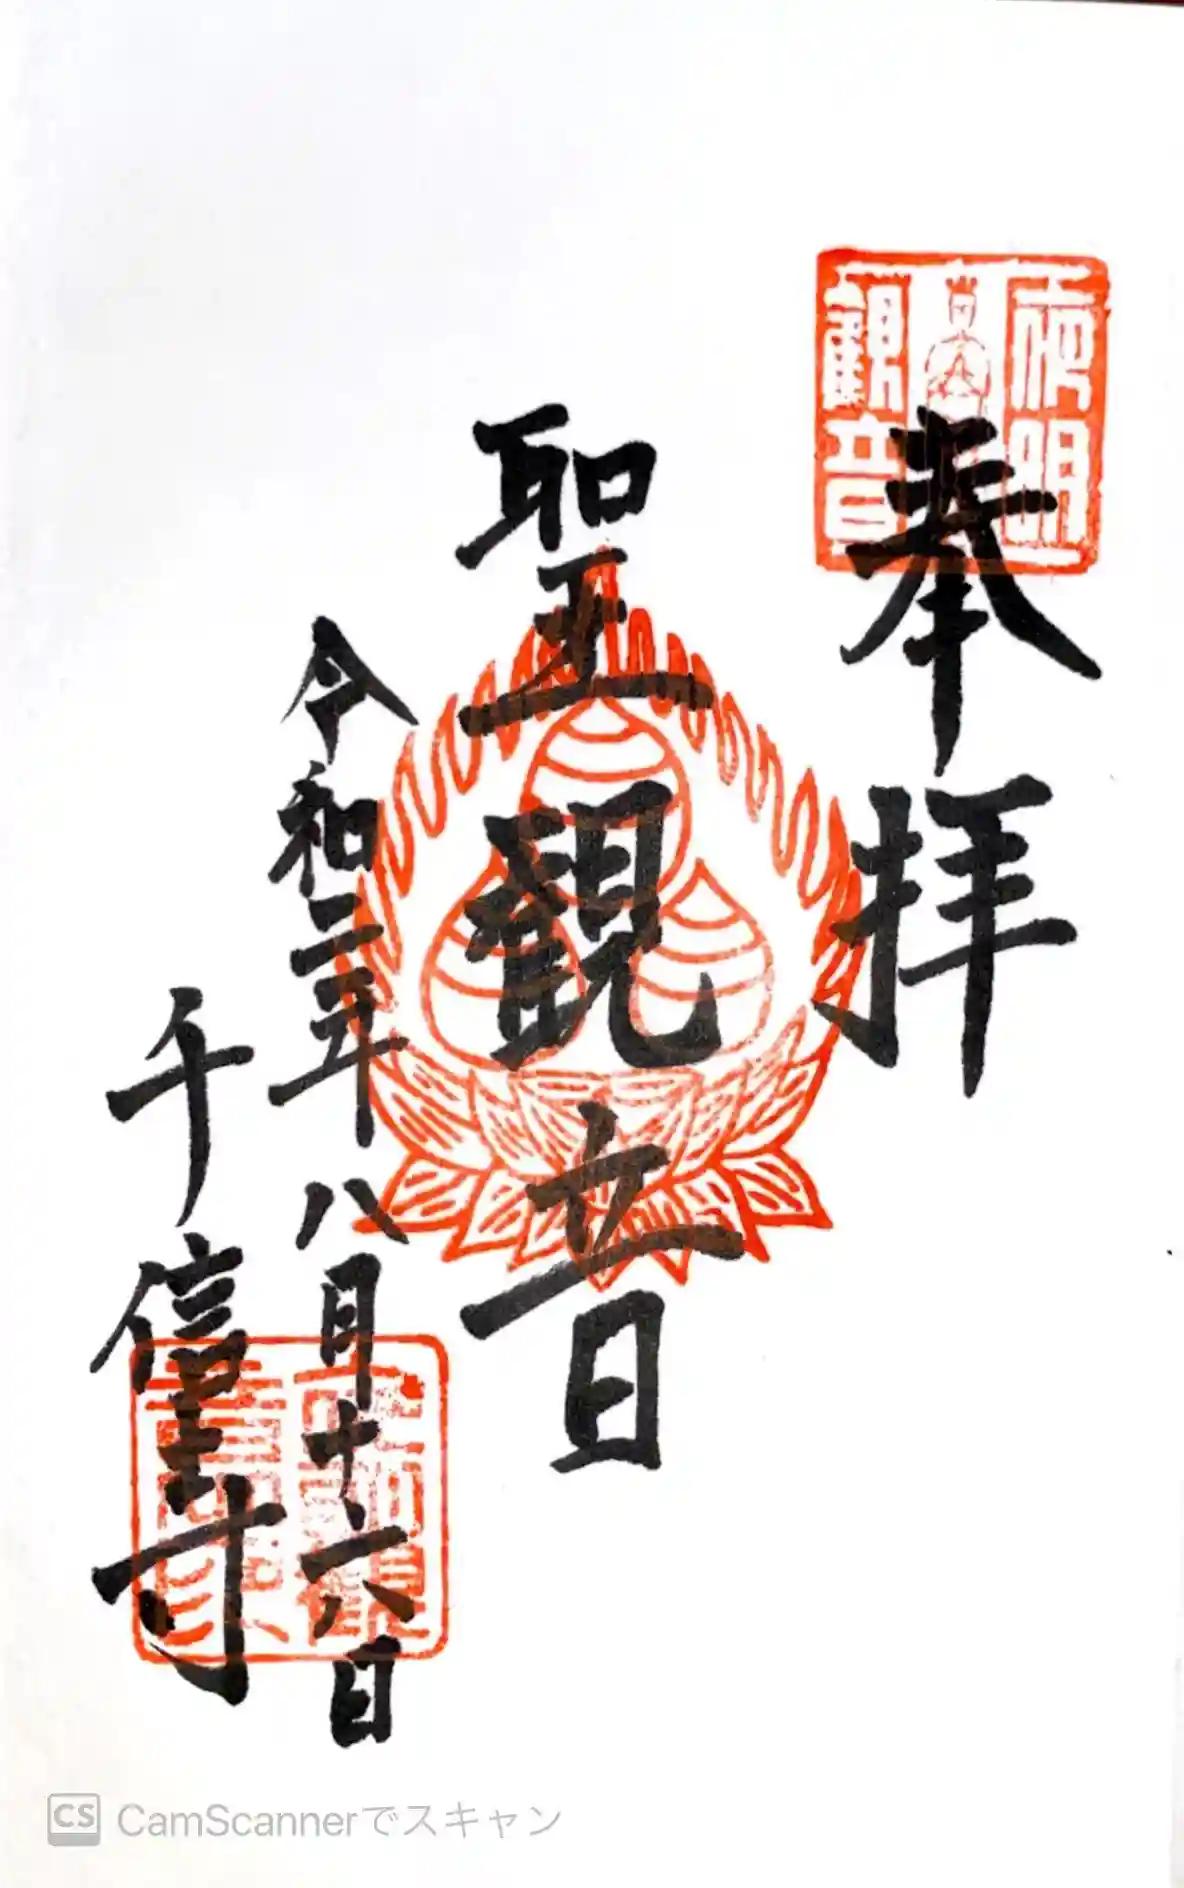 奉拝
夜明
觀音
聖観音
令和二年八月十六日
千信寺
CS CamScannerでスキャン